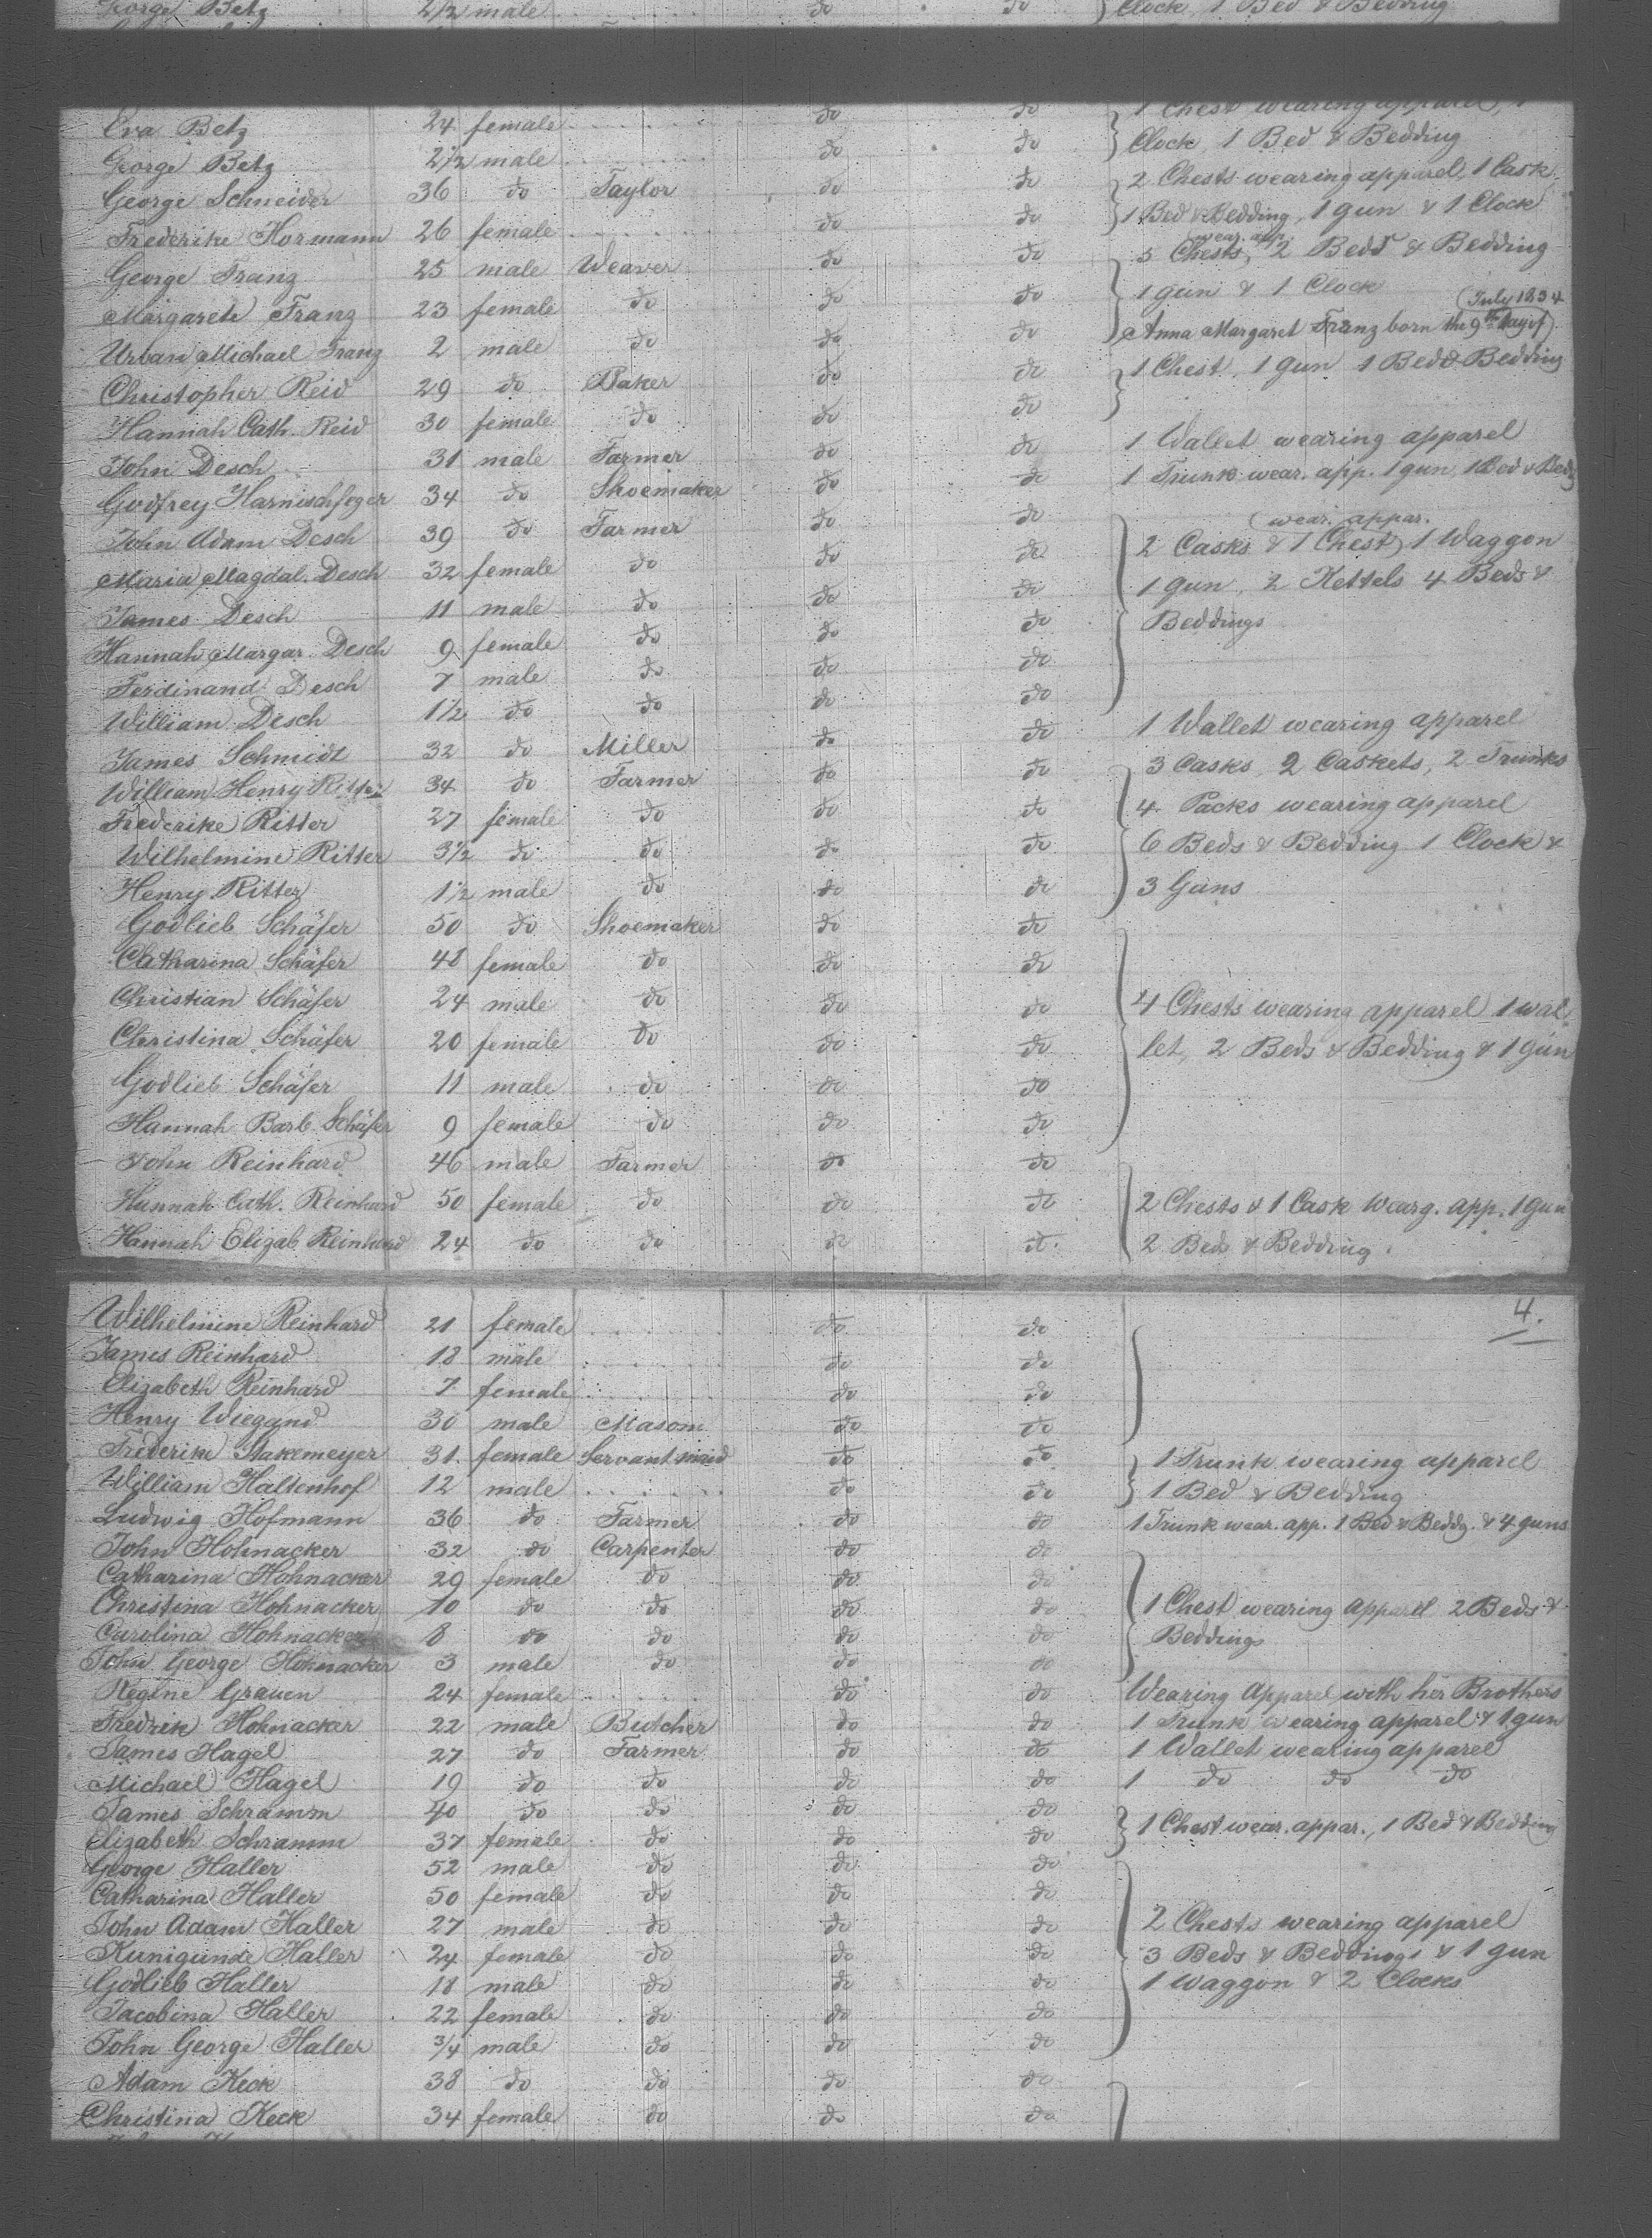 George Betz 2 1/2 male do do Clock, 1 Bed & Bedding
Eva Betz 24 female do do 1 Chest wearing apparel, 1
George Betz 2 1/2 male do do Clock, 1 Bed & Bedding
George Schneider 36 do Taylor do do 2 Chests wearing apparel, 1 Cask
Frederike Hormann 26 female do do 1 Bed & Bedding, 1 gun & 1 Clock
wear. app.
George Franz 25 male Weaver do do 5 Chests, 2 Beds & Bedding
Margarete Franz 23 female do do do 1 gun & 1 Clock (July 1834
Urban Michael Franz 2 male do do do Anna Margaret Franz born the 9th
Christopher Reid 29 do Baker do do 1 Chest, 1 gun 1 Bed & Bedding
Hannah Cath. Reid 30 female do do do
John Desch 31 male Farmer do do 1 Wallet wearing apparel
Godfrey Harnischfeger 34 do Shoemaker do do 1 Trunk wear. app. 1 gun, 1 Bed & Bedg
(wear. appar.
John Adam Desch 39 do Farmer do do 2 Casks & 1 Chest) 1 Waggon
Maria Magdal. Desch 32 female do do do 1 gun, 2 Kettels 4 Beds &
James Desch 11 male do do do Beddings
Hannah Margar. Desch 9 female do do do
Ferdinand Desch 7 male do do do
William Desch 1 1/2 do do do do
James Schmidt 32 do Miller do do 1 Wallet wearing apparel
William Henry Ritter 34 do Farmer do do 3 Casks, 2 Caskets, 2 Trunks
Frederike Ritter 27 female do do do 4 Packs wearing apparel
Wilhelmine Ritter 3 1/2 do do do do 6 Beds & Bedding 1 Clock &
Henry Ritter 1 1/2 male do do do 3 Guns
Godlieb Schäfer 50 do Shoemaker do do
Catharina Schäfer 48 female do do do
Christian Schäfer 24 male do do do 4 Chests wearing apparel 1 wal-
Christina Schäfer 20 female do do do let, 2 Beds & Bedding & 1 gun
Godlieb Schäfer 11 male do do do
Hannah Barb. Schäfer 9 female do do do
John Reinhard 46 male Farmer do do
Hannah Cath. Reinhard 50 female do do do 2 Chests & 1 Cask wearg. app. 1 gun
Hannah Elizab Reinhard 24 do do do do 2 Beds & Bedding
4.
Wilhelmine Reinhard 21 female do do
James Reinhard 18 male do do
Elizabeth Reinhard 7 female do do
Henry Wiegand 30 male Masom do do
Frederike Stakemeyer 31 female Servant maid do do 1 Trunk wearing apparel
William Haltenhof 12 male do do 1 Bed & Bedding
Ludwig Hofmann 36 do Farmer do do 1 Trunk wear. app. 1 Bed & Beddg. & 4 guns
John Hohnacker 32 do Carpenter do do
Catharina Hohnacker 29 female do do do
Christina Hohnacker 10 do do do do 1 Chest wearing apparel 2 Beds &
Carolina Hohnacker 8 do do do do Beddings
John George Hohnacker 3 male do do do
Regine Grauen 24 female do do Wearing Apparel with her Brothers
Fredrik Hohnacker 22 male Butcher do do 1 Trunk wearing apparel & 1 gun
James Hagel 27 do Farmer do do 1 Wallet wearing apparel
Michael Hagel 19 do do do do 1 do do do
James Schramm 40 do do do do
Elizabeth Schramm 37 female do do do 1 Chest wear. appar., 1 Bed & Bedding
George Haller 52 male do do do
Catharina Haller 50 female do do do
John Adam Haller 27 male do do do 2 Chests wearing apparel
Kunigunde Haller 24 female do do do 3 Beds & Beddings & 1 gun
Godlieb Haller 18 male do do do 1 Waggon & 2 Clocks
Jacobina Haller 22 female do do do
John George Haller 3/4 male do do do
Adam Keck 38 do do do do
Christina Keck 34 female do do do